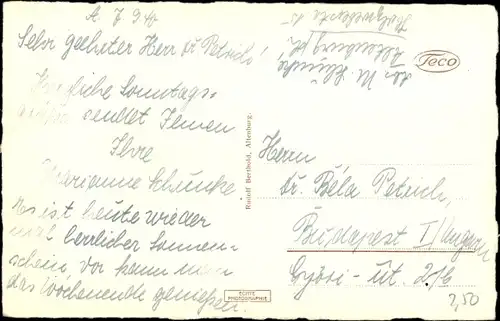 A. 7. 9. 40
Sehr geehrter Herr Dr Petrich!
Herzliche Sonntags-
grüße sendet Ihnen
Ihre
Marianne Schunke
Es ist heute wieder
mal herrlicher Sonnen-
schein, da kann man
das Wochenende genießen.
M. Schunke
Altenburg
Teco
Rudolf Berthold, Altenburg.
ECHTE
PHOTOGRAPHIE
Herrn
Dr. Béla Petrich,
Budapest I/Ungarn
Györi-út. 2/b
2,50